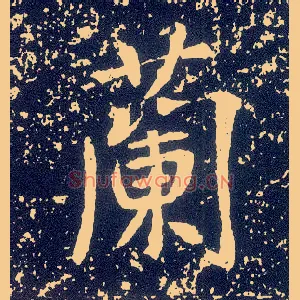 蘭
Shufawang.CN